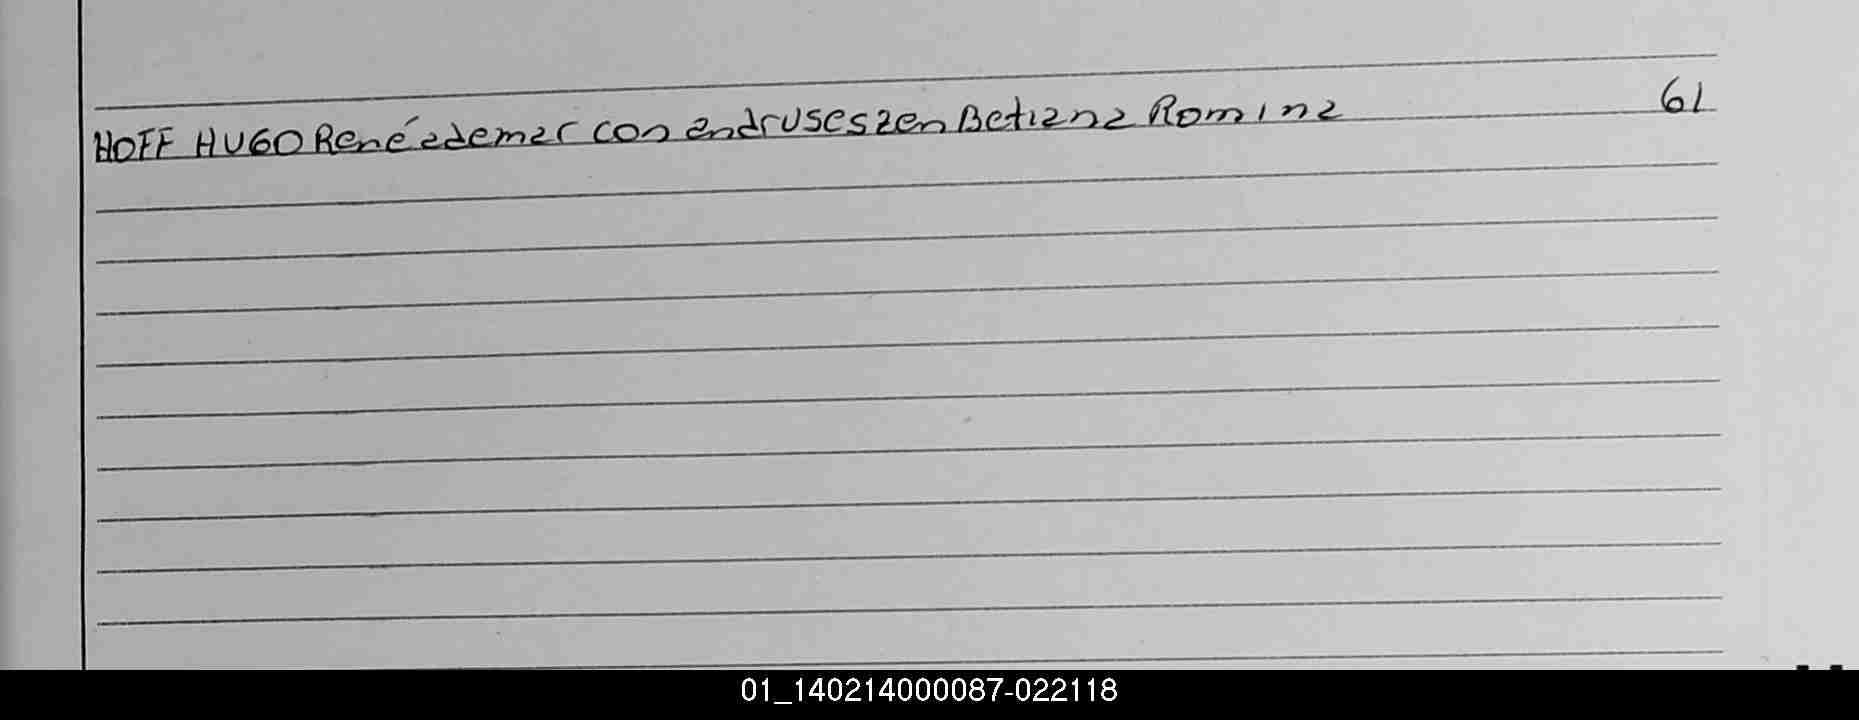 HOFF HUGO René ademar con andruseszen Betiana Romina 61
01_140214000087-022118